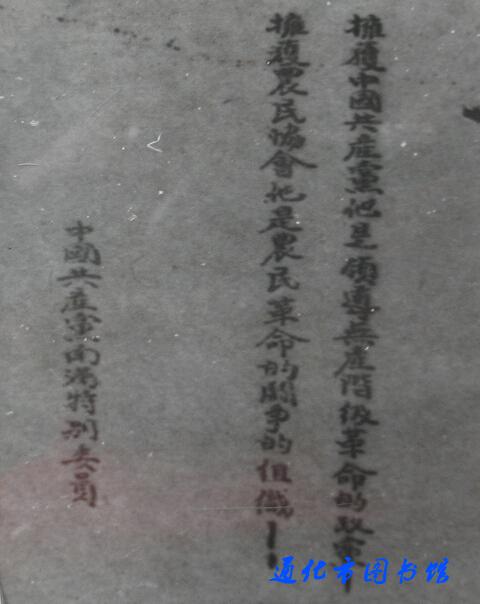 擁護中國共產黨他是領導無產階級革命的政黨！
擁護農民協會他是農民革命的鬪爭的組織！！
中國共產黨南滿特別委員
通化市图书馆